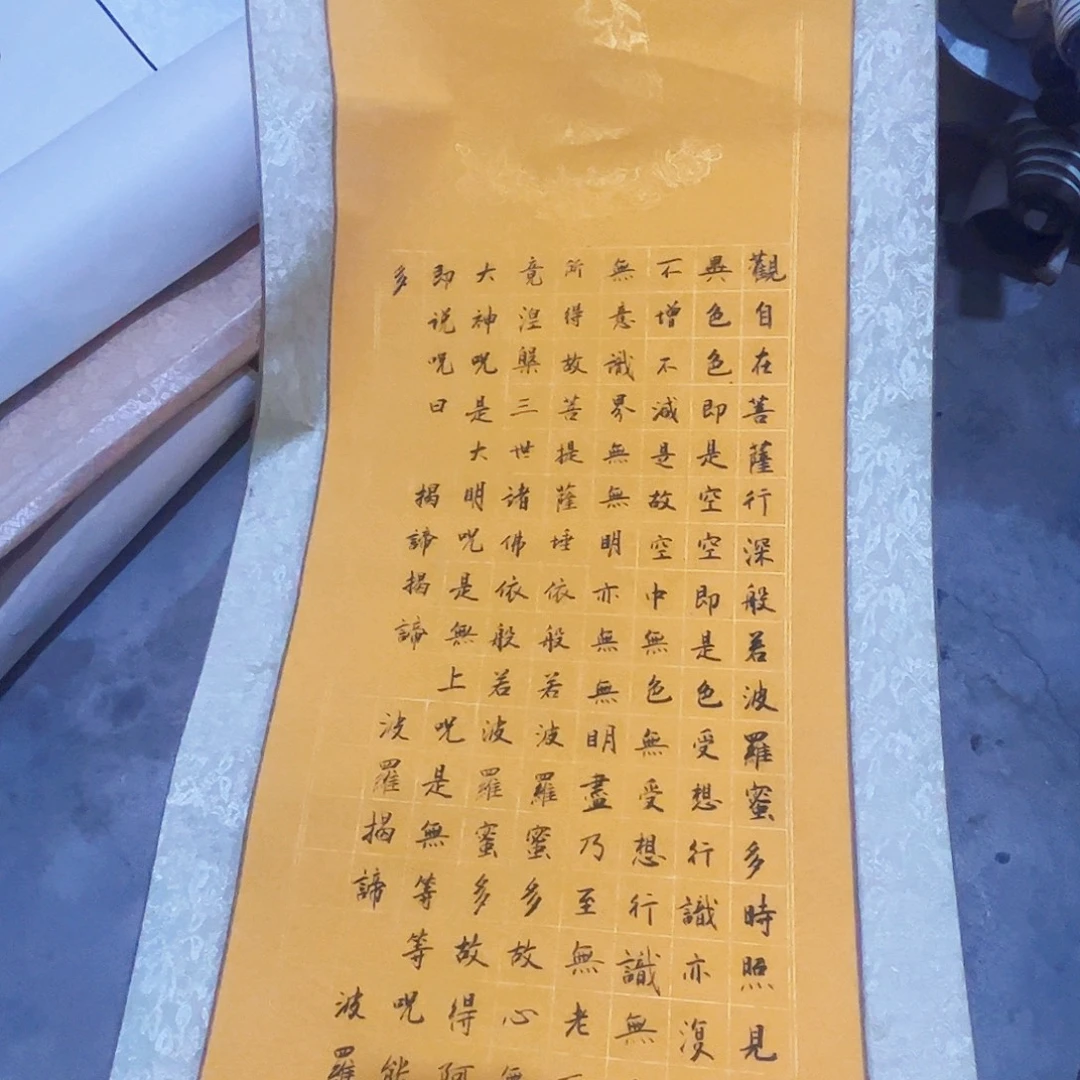 觀自在菩薩行深般若波羅蜜多時照見
異色色即是空空即是色受想行識亦復
不增不減是故空中無色無受想行識無
無意識界無無明亦無無明盡乃至無老
所得故菩提薩埵依般若波羅蜜多故心無
竟涅槃三世諸佛依般若波羅蜜多故得阿
大神呪是大明呪是無上呪是無等等呪能
即说呪曰 揭諦揭諦 波羅揭諦 波羅
多